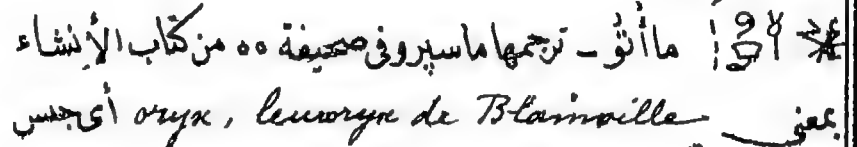 ماأتو ـ ترجمها ماسپرو فى صحيفة ٥٥ من كتاب الأنشاء
بمعنى oryx, leucoryx de Blainville أى جنس